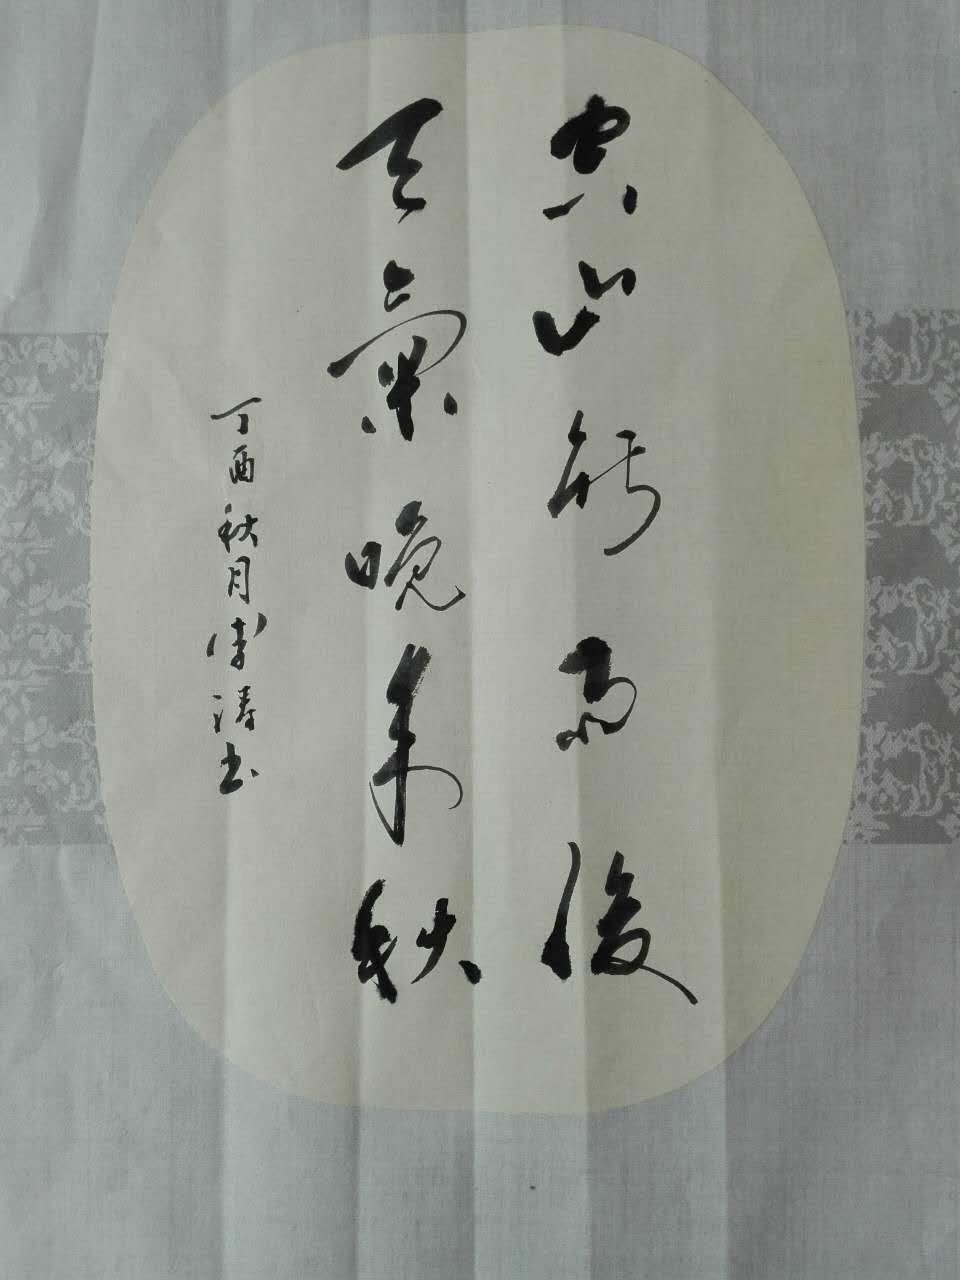 空山新雨後
天氣晚来秋
丁酉秋月李濤书